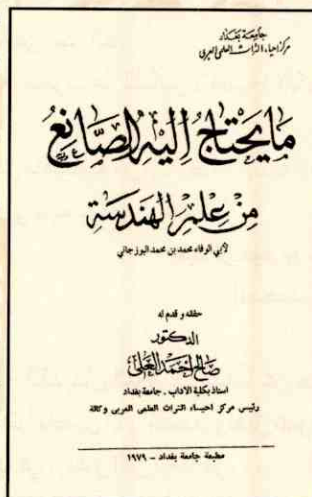 جامعة بغداد
مركز احياء التراث العلمي العربي
ما يحتاج إليه الصانع
من علم الهندسة
لأبي الوفاء محمد بن محمد البوزجاني
حققه و قدم له
الدكتور
صالح احمد العلي
استاذ بكلية الاداب . جامعة بغداد
رئيس مركز احيساء التراث العلمي العربي وكالة
مطبعة جامعة بغداد - ١٩٧٩